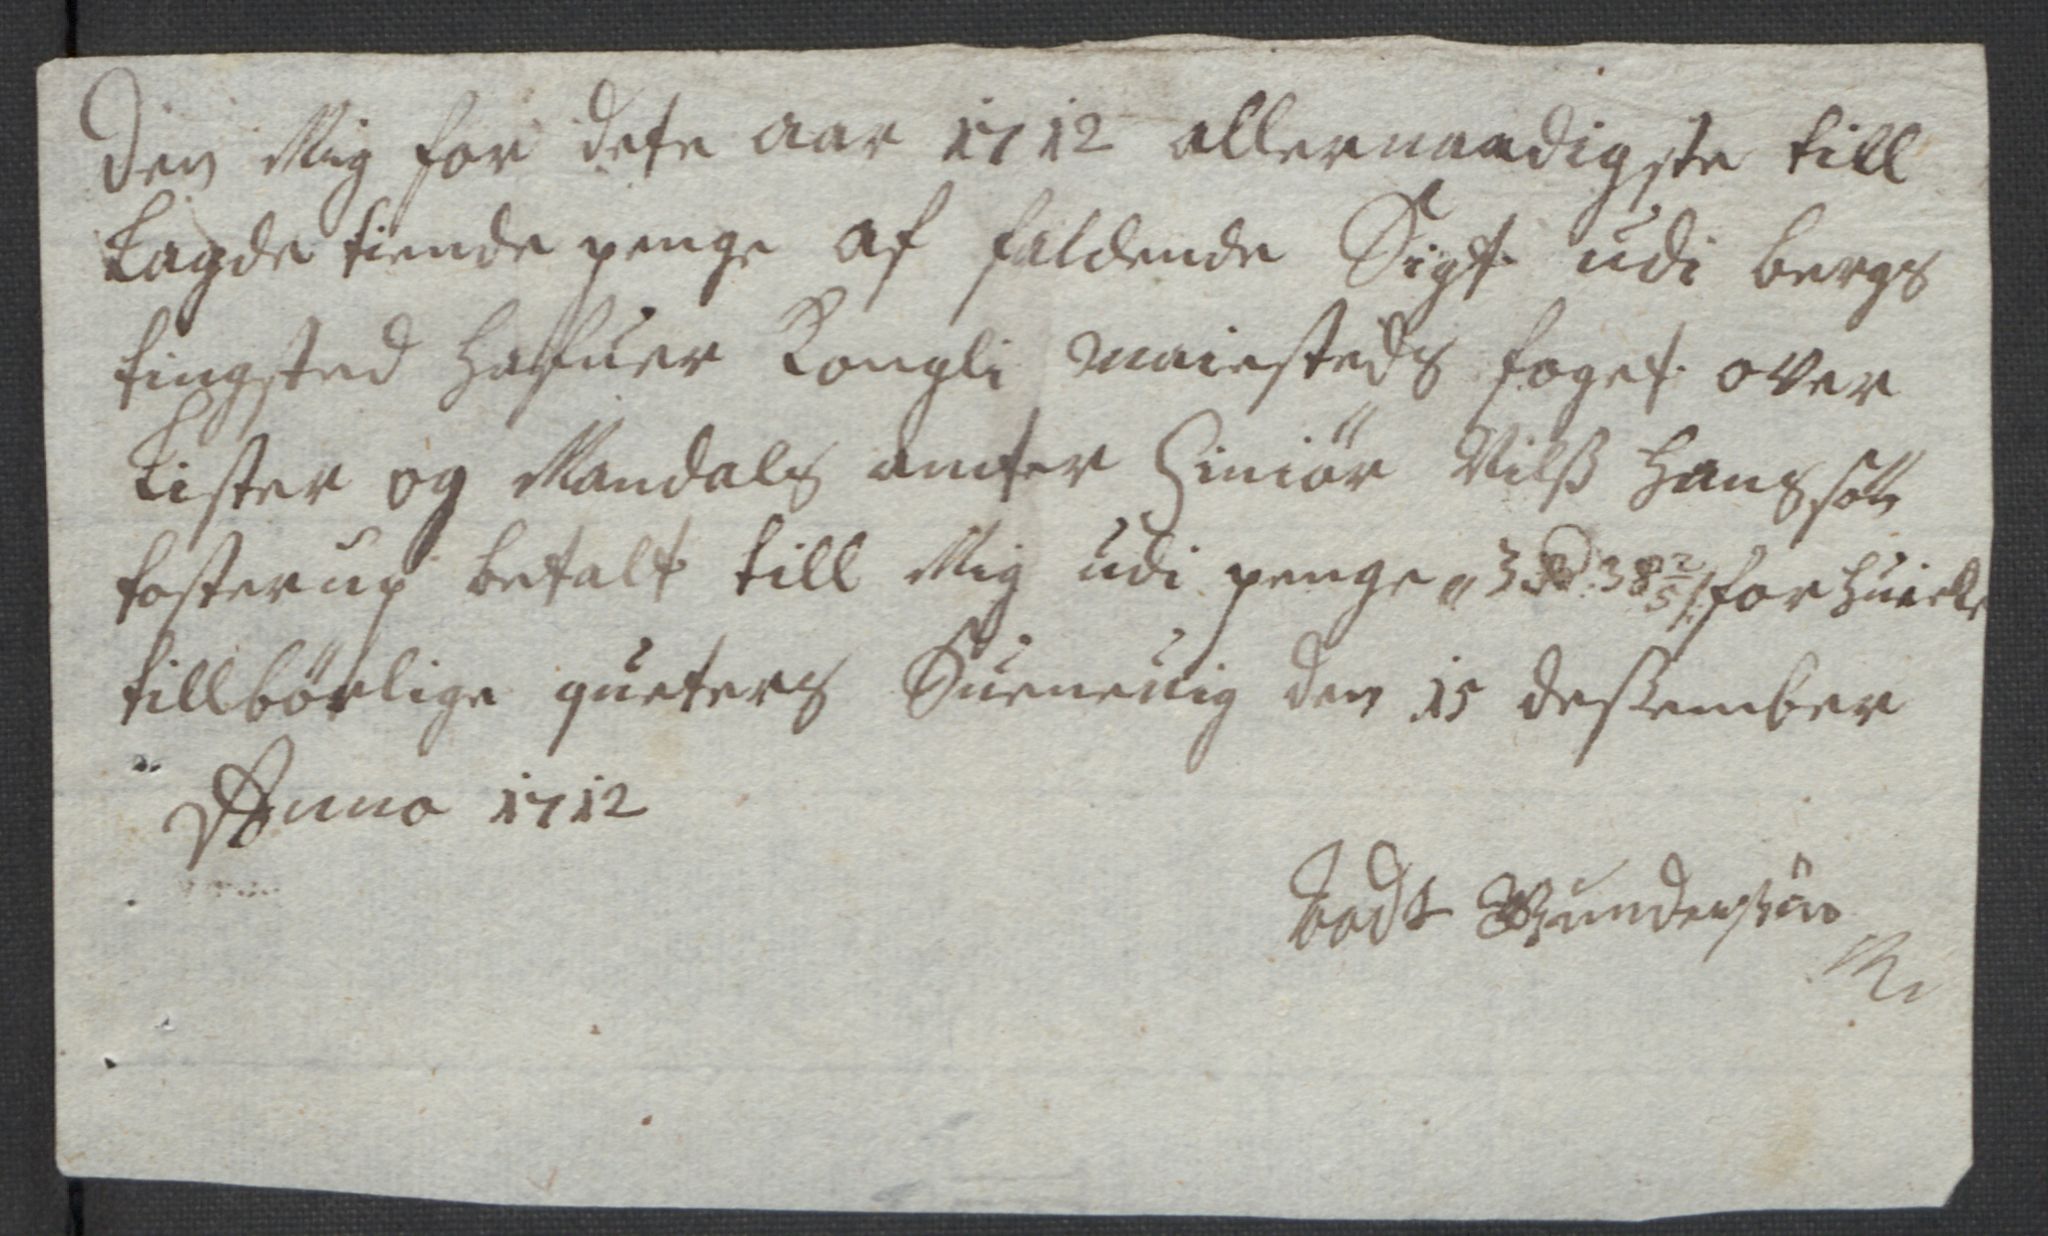 Den Mig for dete aar 1712 allernaadigste till
Lagde tiende penge af faldende Sigt udi bergs
tingsted hafuer Kongli Maiesteds foget over
Lister og Mandals amter Siniör Nilß Hansson
tosterup betalt till Mig udi penge 3 Rd 38 2/5 for huicke
tillbörlige queters Sueneuig den 15 deßember
Anno 1712
Todt Gundersön